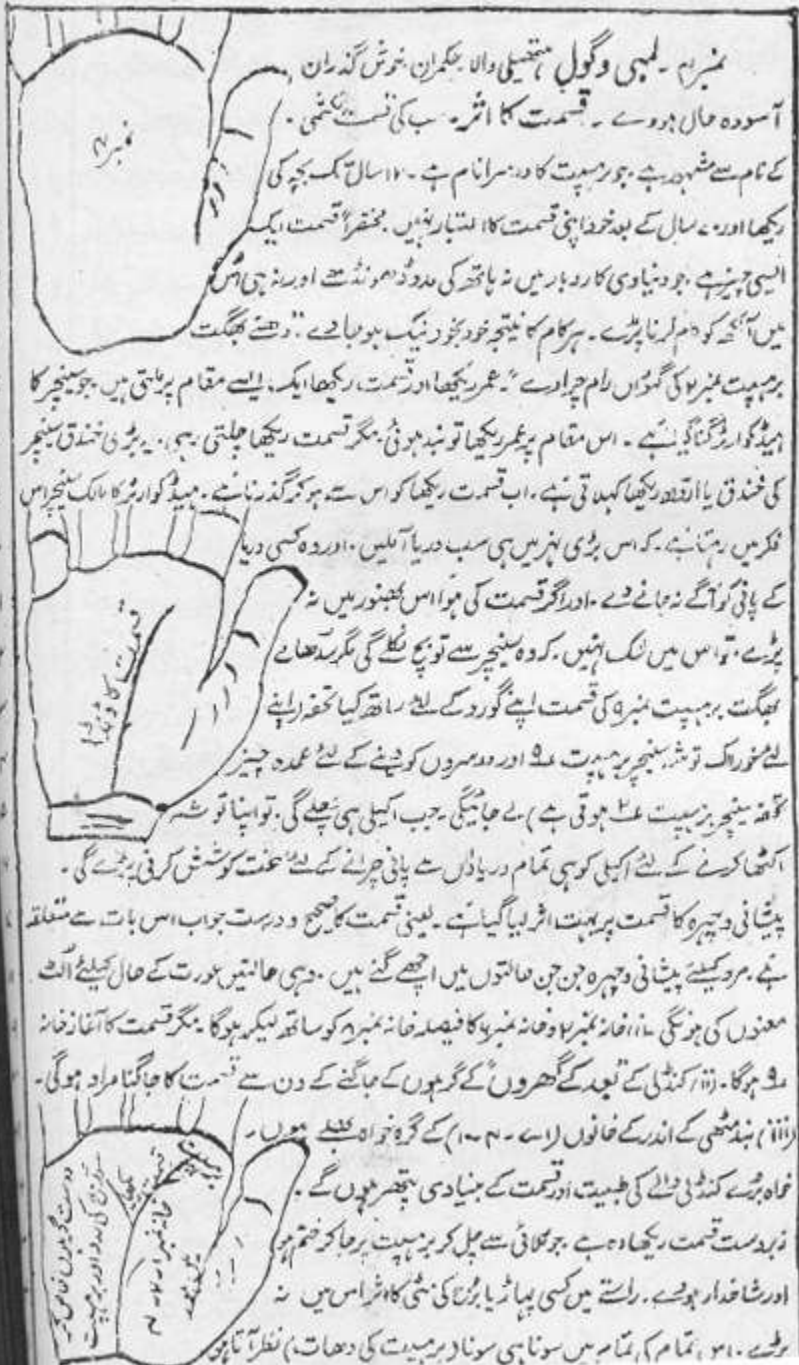 نمبر ۴ - لمبی و گول ہتھیلی والا حکمران، خوش گذران
آسودہ حال ہووے - قسمت کا اثر - سب کی قسمت
کے نام سے مشہور ہے جو برہسپت کا دوسرا نام ہے - ۱۲ سال تک بچہ کی
ریکھا اور ۷۰ سال کے بعد خود اپنی قسمت کا اعتبار نہیں مختصراً قسمت ایک
ایسی چیز ہے جو دنیاوی کاروبار میں نہ ہاتھ کی مدد ڈھونڈے اور نہ ہی اس
میں آنکھ کو کام کرنا پڑے - ہر کام کا نتیجہ خود بخود نیک ہو جاوے "دھنے بھگت
برہسپت نمبر ۲ کی گئواں رام چراوے" - عمر ریکھا اور قسمت ریکھا ایک ایسے مقام پر ملتی ہیں جو سنیچر کا
ہیڈ کوارٹر گنا گیا ہے - اس مقام پر عمر ریکھا تو بند ہوئی مگر قسمت ریکھا چلتی رہی - یہ بڑی خندق سنیچر
کی خندق یا ریکھا کہلاتی ہے - اب قسمت ریکھا کو اس سے ہو کر گذرنا ہے - ہیڈ کوارٹر کا مالک سنیچر اس
فکر میں رہتا ہے - کہ اس بڑی نہر میں ہی سب دریا آ ملیں - اور وہ کسی دریا
کے پانی کو آگے نہ جانے دے - اور اگر قسمت کی ہوا اس بھنور میں نہ
پڑے - تو اس میں شک نہیں - کہ وہ سنیچر سے تو بچ نکلے گی مگر سدھارے
بھگت برہسپت نمبر ۹ کی قسمت اپنے گورو کے لئے ساتھ کیا تحفہ (اپنے
لئے خوراک توشہ سنیچر برہسپت ۹ اور دوسروں کو دینے کے لئے عمدہ چیز
تحفہ سنیچر برہسپت ۲ ہوتی ہے) لے جائیگی - جب اکیلی ہی چلے گی - تو اپنا توشہ
اکٹھا کرنے کے لئے اکیلی کو ہی تمام دریاؤں سے پانی چرانے کے لئے سخت کوشش کرنی پڑے گی -
پیشانی و چہرہ کا قسمت پر بہت اثر لیا گیا ہے - یعنی قسمت کا صحیح و درست جواب اس بات سے متعلقہ
ہے - مرد کیلئے پیشانی و چہرہ جن جن حالتوں میں اچھے گنے ہیں - وہی حالتیں عورت کے حال کیلئے الٹ
معنوں کی ہونگی - (i) خانہ نمبر ۲ و خانہ نمبر ۶ کا فیصلہ خانہ نمبر ۸ کو ساتھ لیکر ہوگا - مگر قسمت کا آغاز خانہ
۹ ہوگا - (ii) کنڈلی کے بعد کے گھروں کے گرہوں کے جاگنے کے دن سے قسمت کا جاگنا مراد ہوگی -
(iii) بند مٹھی کے اندر کے خانوں (۱ - ۷ - ۴ - ۱۰) کے گرہ خواہ بھلے ہوں -
خواہ بڑے کنڈلی والے کی طبیعت اور قسمت کے بنیادی پتھر ہوں گے -
زبردست قسمت ریکھا وہ ہے - جو کلائی سے چل کر برہسپت پر جا کر ختم ہو
اور شاخدار ہووے - راستے میں کسی پہاڑ یا برج کی مٹی کا اثر اس میں نہ
پڑے - اس تمام کی تمام میں سونا ہی سونا (برہسپت کی دھات) نظر آتا ہو
نمبر ۴
قسمت کا ڈنڈا
برہسپت
سورج کی مدد اور برہسپت